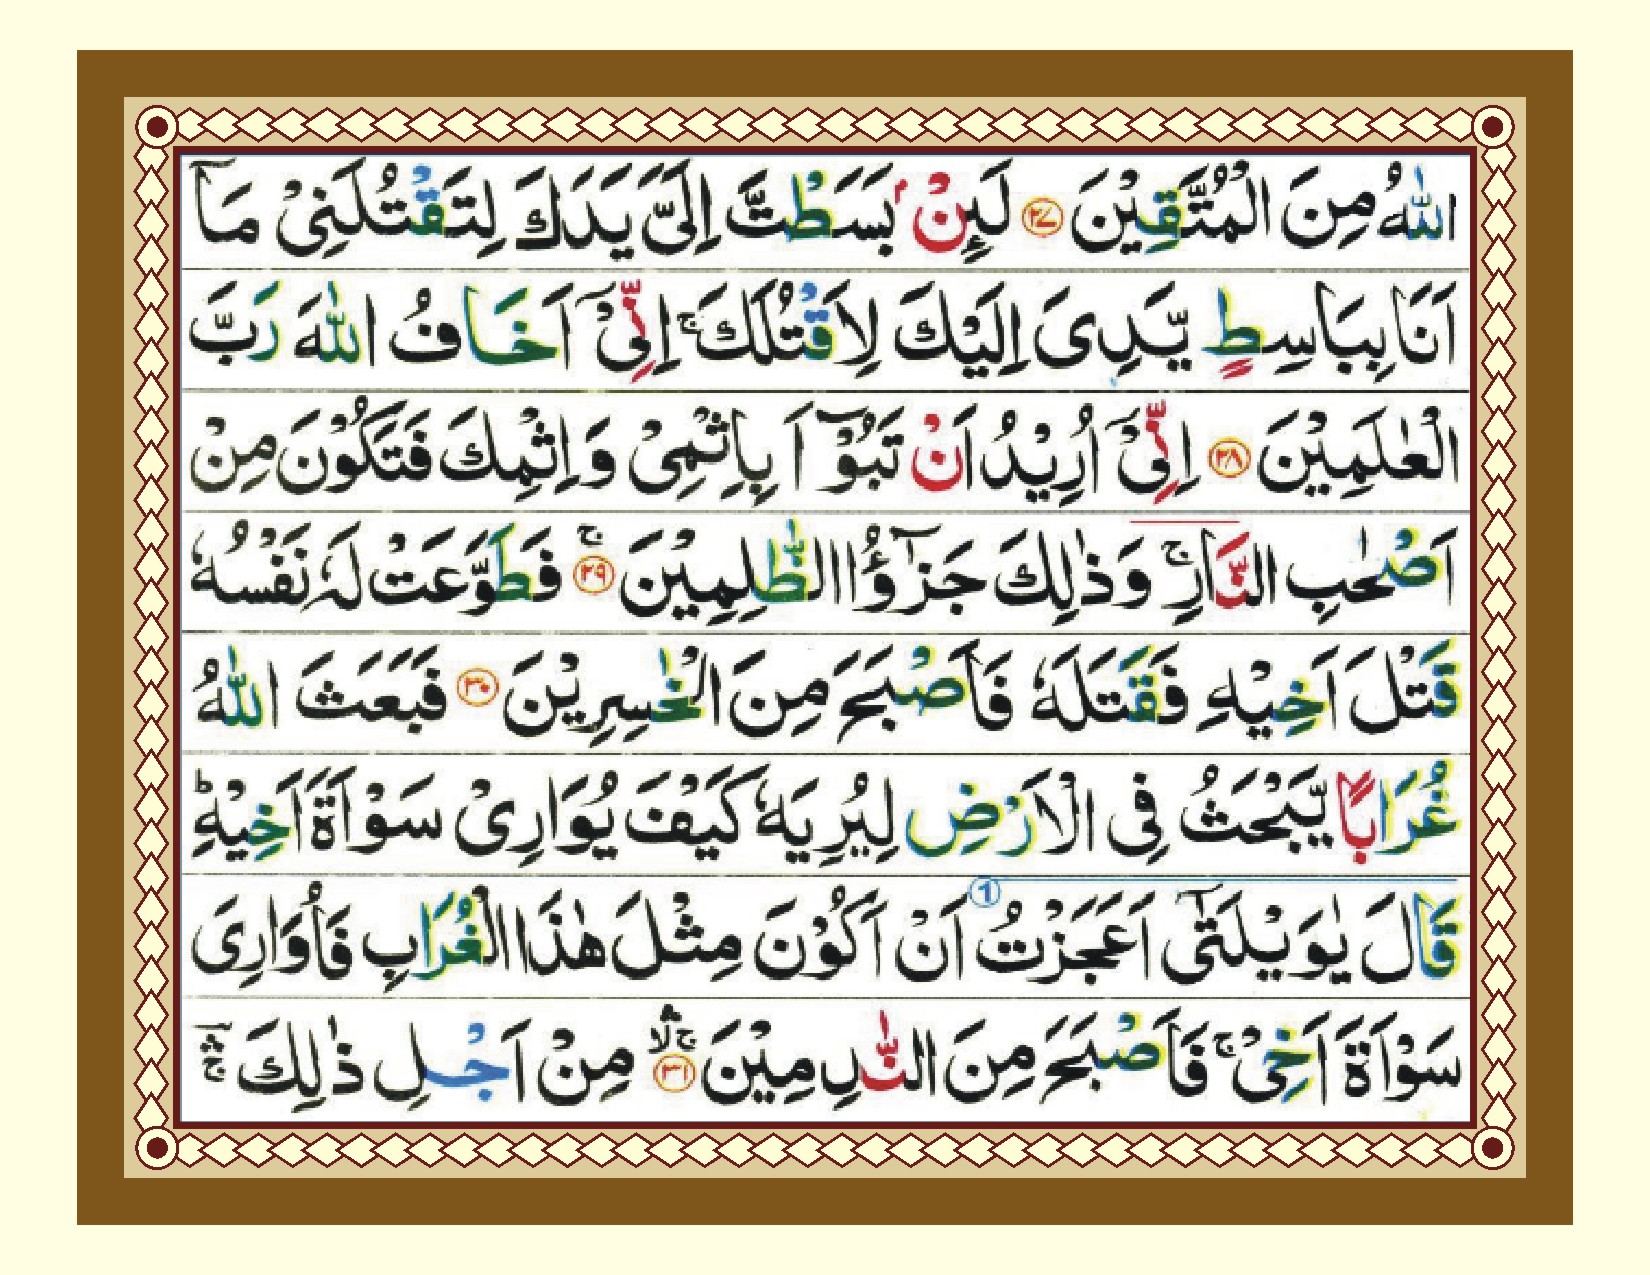 اللّٰهُ مِنَ الْمُتَّقِيْنَ ﴿۲۷﴾ لَئِنْۢ بَسَطْتَّ اِلَيَّ يَدَكَ لِتَقْتُلَنِىْ مَاۤ
اَنَا بِبَاسِطٍ يَّدِىَ اِلَيْكَ لِاَقْتُلَكَ ۚ اِنِّىْۤ اَخَافُ اللّٰهَ رَبَّ
الْعٰلَمِيْنَ ﴿۲۸﴾ اِنِّىْۤ اُرِيْدُ اَنْ تَبُوْٓءَاۡ بِاِثْمِىْ وَ اِثْمِكَ فَتَكُوْنَ مِنْ
اَصْحٰبِ النَّارِ ۚ وَ ذٰلِكَ جَزٰٓؤُا الظّٰلِمِيْنَ ۚ﴿۲۹﴾ فَطَوَّعَتْ لَهٗ نَفْسُهٗ
قَتْلَ اَخِيْهِ فَقَتَلَهٗ فَاَصْبَحَ مِنَ الْخٰسِرِيْنَ ﴿۳۰﴾ فَبَعَثَ اللّٰهُ
غُرَابًا يَّبْحَثُ فِى الْاَرْضِ لِيُرِيَهٗ كَيْفَ يُوَارِىْ سَوْاَةَ اَخِيْهِ ؕ
قَالَ يٰوَيْلَتٰٓى اَعَجَزْتُ 1 اَنْ اَكُوْنَ مِثْلَ هٰذَا الْغُرَابِ فَاُوَارِىَ
سَوْاَةَ اَخِىْ ۚ فَاَصْبَحَ مِنَ النّٰدِمِيْنَ ۚۙۛ﴿۳۱﴾ مِنْ اَجْلِ ذٰلِكَ ۛۚ